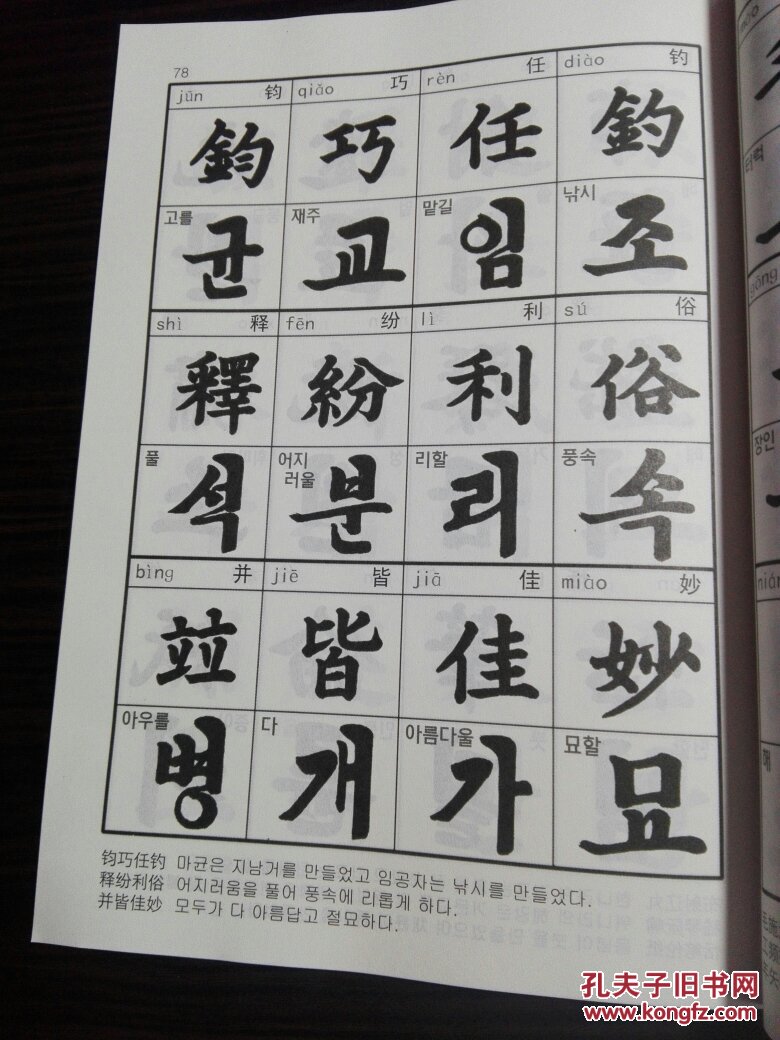 78
jūn 钧 qiǎo 巧 rèn 任 diào 钓
鈞 巧 任 釣
고를 재주 맡길 낚시
균 교 임 조
shì 释 fēn 纷 lì 利 sú 俗
釋 紛 利 俗
풀 어지러울 리할 풍속
석 분 리 속
bìng 并 jiē 皆 jiā 佳 miào 妙
竝 皆 佳 妙
아우를 다 아름다울 묘할
병 개 가 묘
钧巧任钓 마균은 지남거를 만들었고 임공자는 낚시를 만들었다.
释纷利俗 어지러움을 풀어 풍속에 리롭게 하다.
并皆佳妙 모두가 다 아름답고 절묘하다.
터럭
gōng
장인
nián
해
孔夫子旧书网
www.kongfz.com